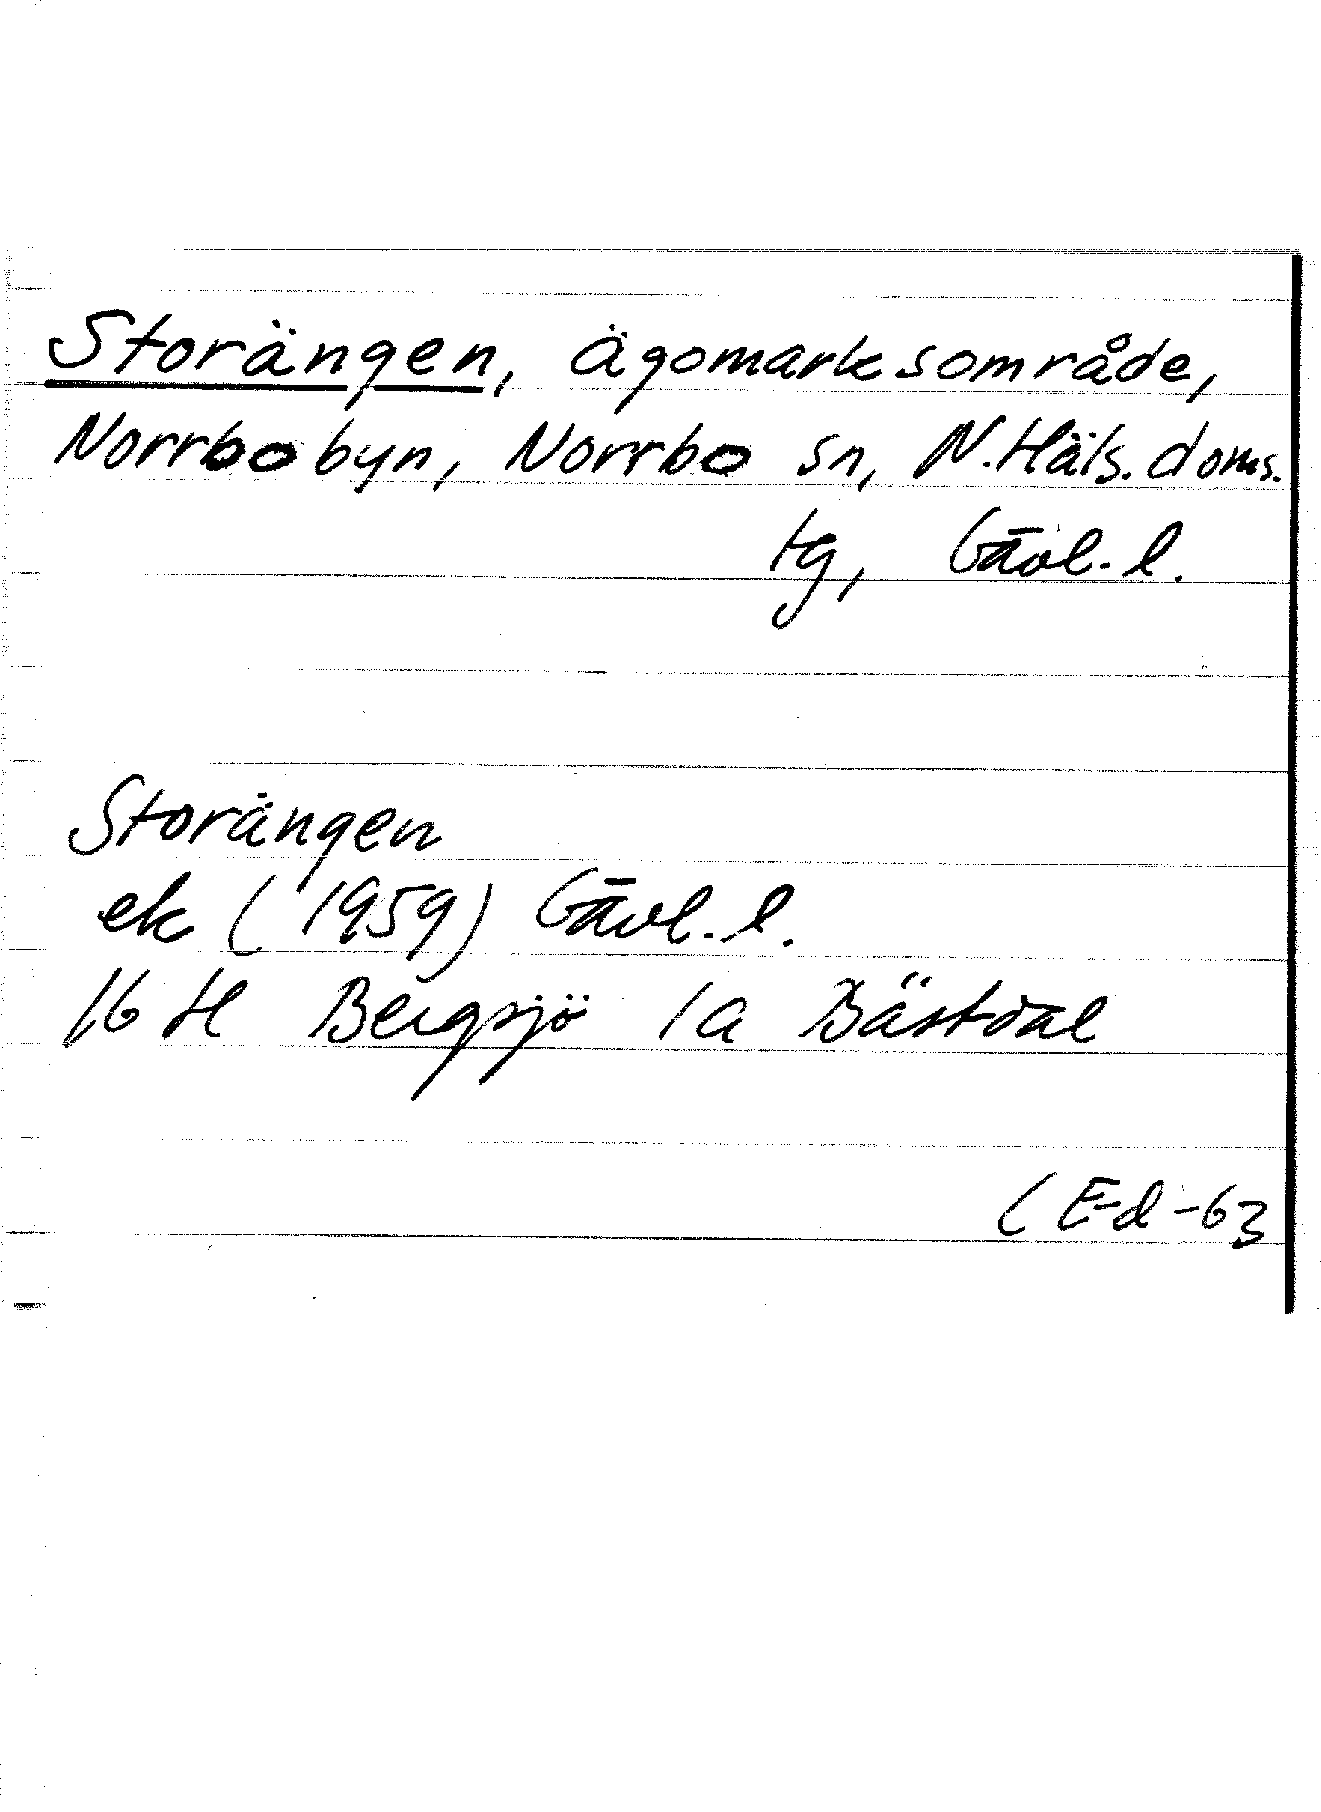 Storängen, ägomarksområde,
Norrbobyn, Norrbo sn, N.Häls. doms.
tg, Gävl. l.
Storängen
ek (1959) Gävl. l.
16 H Bergsjö 1a Bästdal
(E-d -63